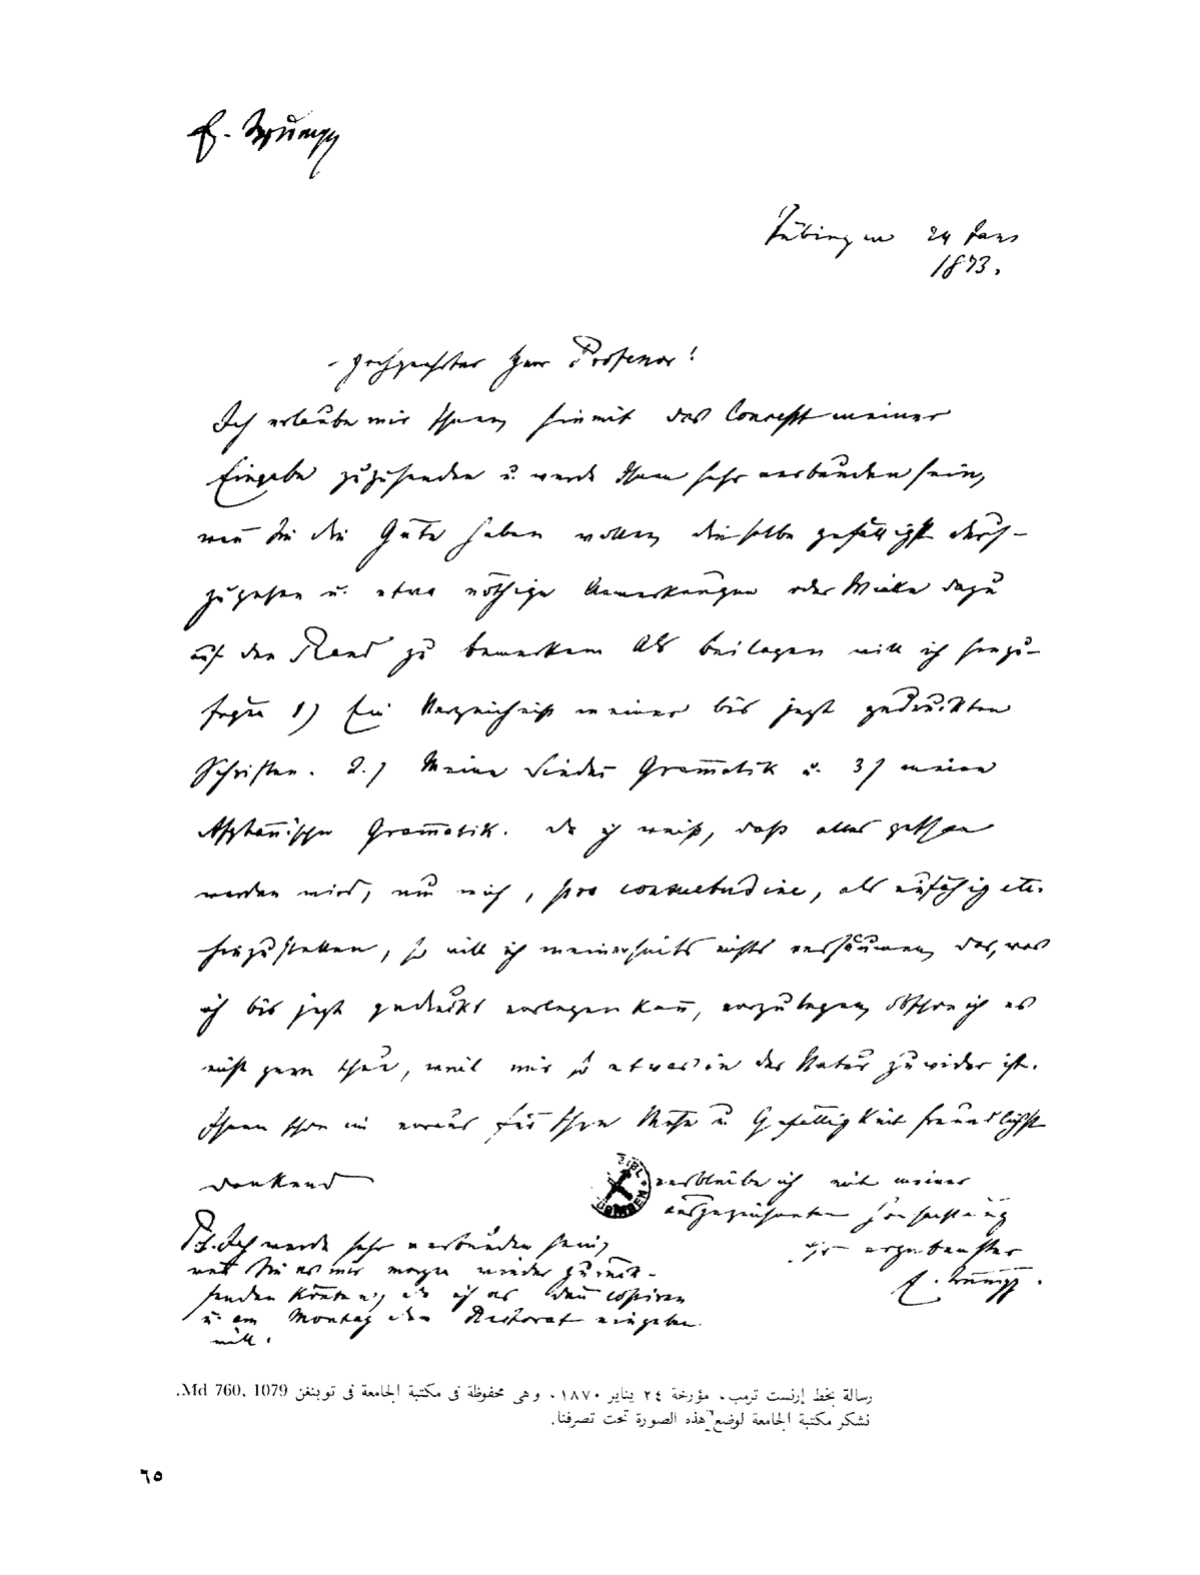 E. Trumpp
Tübingen 24 Jan.
1873.
Hochgeehrter Herr Professor!
Ich erlaube mir Ihnen hiemit das Concept meiner
Eingabe zuzusenden u. werde Ihnen sehr verbunden sein,
wenn Sie die Güte haben wollen, dieselbe gefälligst durch-
zugehen u. etwa nöthige Anmerkungen oder Winke dazu
auf den Rand zu bemerken. Als Beilagen will ich hinzu-
fügen 1) Ein Verzeichniß meiner bis jezt gedruckten
Schriften. 2.) Meine Sindhi Grammatik u. 3) meine
Afghanische Grammatik. Da ich weiß, daß alles gethan
werden wird, um mich, pro consuetudine, als unfähig etc.
hinzustellen, so will ich meinerseits nichts versäumen, das, was
ich bis jezt gedruckt vorlegen kann, vorzulegen, obschon ich es
nicht gern thue, weil mir so etwas in der Natur zuwider ist.
Ihnen schon im voraus für Ihre Mühe u. Gefälligkeit freundlichst
dankend verbleibe ich mit meiner
ausgezeichneten Hochachtung
Ihr ergebenster
E. Trumpp.
PS. Ich werde sehr verbunden sein,
wenn Sie es mir morgen wieder zurück-
senden könnten, da ich es dann copiren
u. am Montag dem Rectorat eingeben
will.
رسالة بخط إرنست ترمب، مؤرخة ٢٤ يناير ١٨٧٠، وهى محفوظة فى مكتبة الجامعة فى توبنغن Md 760, 1079.
نشكر مكتبة الجامعة لوضع هذه الصورة تحت تصرفنا.
٦٥